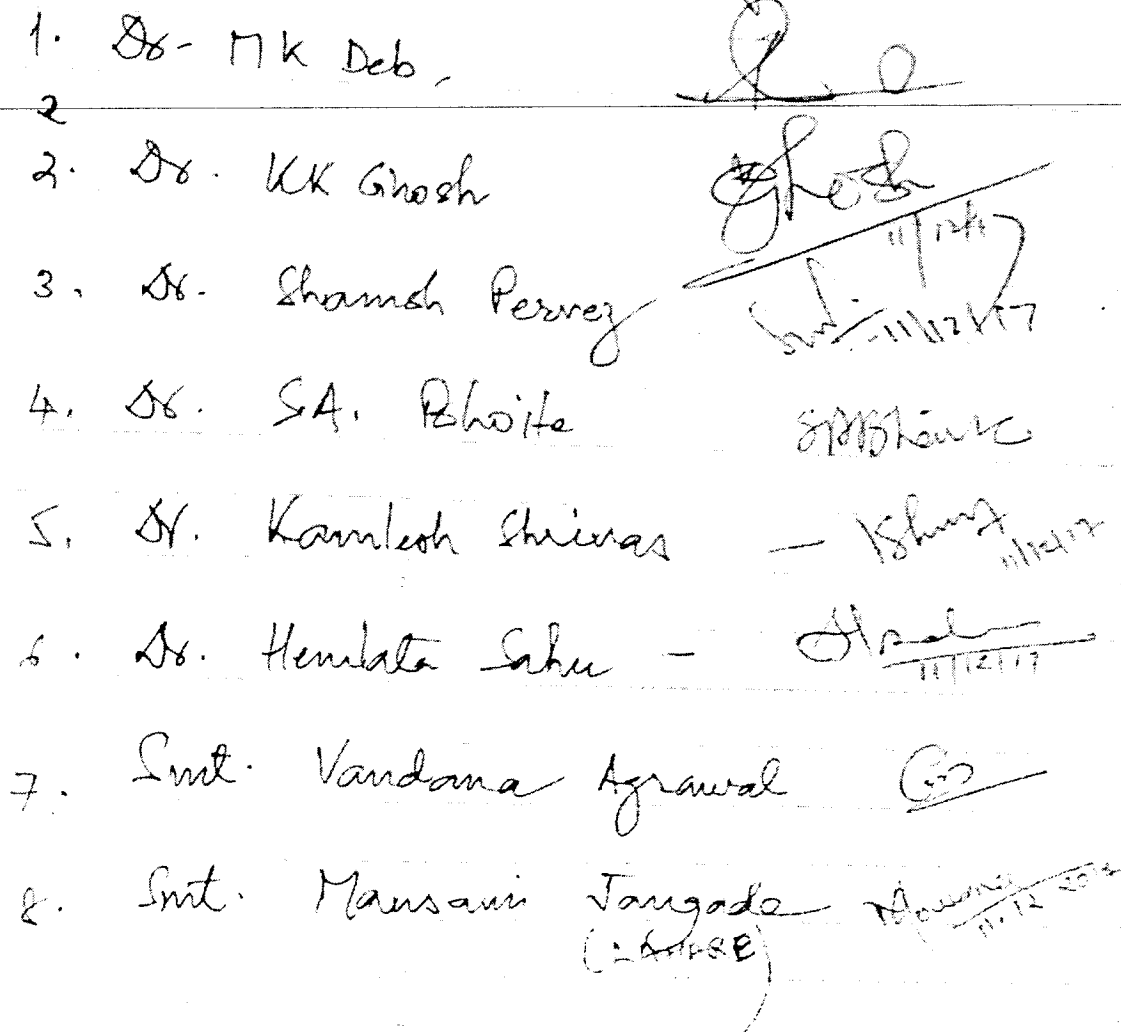 1. Dr- MK Deb,
2
2. Dr. KK Ghosh Ghosh
11/12/17
3. Dr. Shamsh Pervez 11/12/17
4. Dr. S.A. Bhoite SABhoite
5. Dr. Kamlesh Shrivas -
11/12/17
6. Dr. Hemlata Sahu - HSahu
11/12/17
7. Smt. Vandana Agrawal
8. Smt. Mausami Jangade
11.12